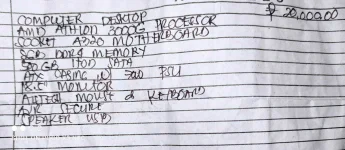 COMPUTER DESKTOP ₱ 20,000.00
AMD ATHLON 3000G PROCESSOR
SOCKET A320 MOTHERBOARD
8GB DDR4 MEMORY
HDD SATA
500 PSU
MONITOR
MOUSE & KEYBOARD
SECURE
SPEAKER USB